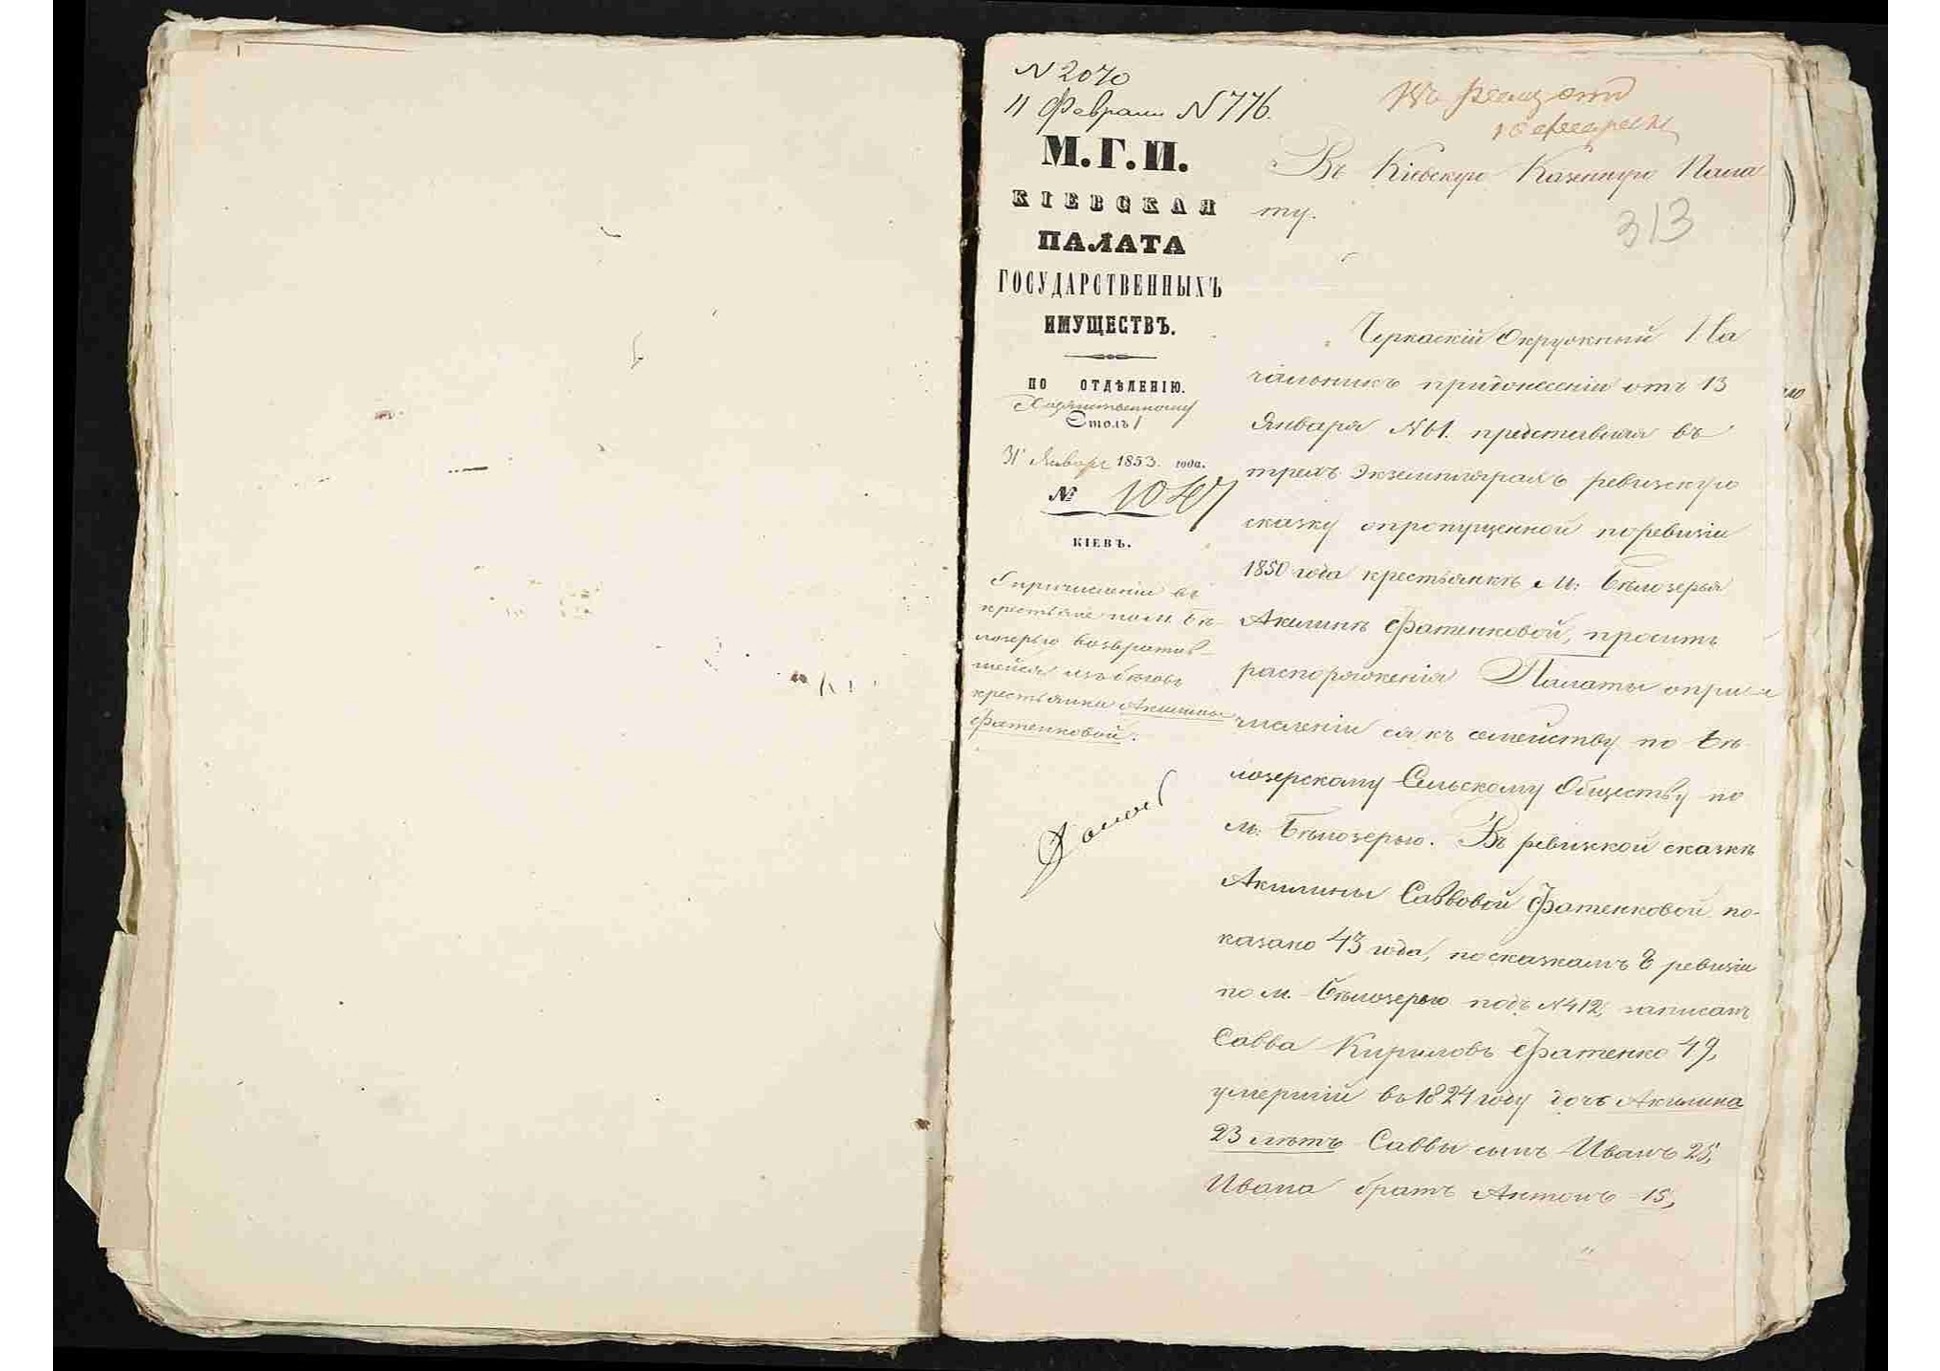 N 2070
11 Февраля N 776.
М.Г.И.
КІЕВСКАЯ
ПАЛАТА
ГОСУДАРСТВЕННЫХЪ
ИМУЩЕСТВЪ.
ПО ОТДѢЛЕНІЮ.
Хозяйственному
Столъ 1
31 Января 1853. года.
№ 1047
КІЕВЪ.
О причисленіи въ
крестьяне по м. Бѣ-
лозерью возвратив-
шейся изъ бѣговъ
крестьянки Акилины
Фатенковой.
10 февраля
Въ Кіевскую Казенную Пала
ту.
313
Черкаскій Окружный На
чальникъ при донесеніи отъ 13
Января №61. представляя въ
трехъ экземплярахъ ревизскую
сказку о пропущенной по ревизіи
1850 года крестьянкѣ М: Бѣлозерья
Акилинѣ Фатенковой, проситъ
распоряженія Палаты о при
численіи ея къ семейству по Бѣ
лозерскому Сельскому Обществу по
м. Бѣлозерью. Въ ревизкой сказкѣ
Акилины Саввовой Фатенковой по-
казано 43 года, по сказкамъ 8 ревизіи
по м. Бѣлозерью подъ N 412, записанъ
Савва Кириловъ Фатенко 49,
умершій въ 1824 году дочь Акилина
23 лѣтъ Саввы сынъ Иванъ 25,
Ивана братъ Антонъ 15,